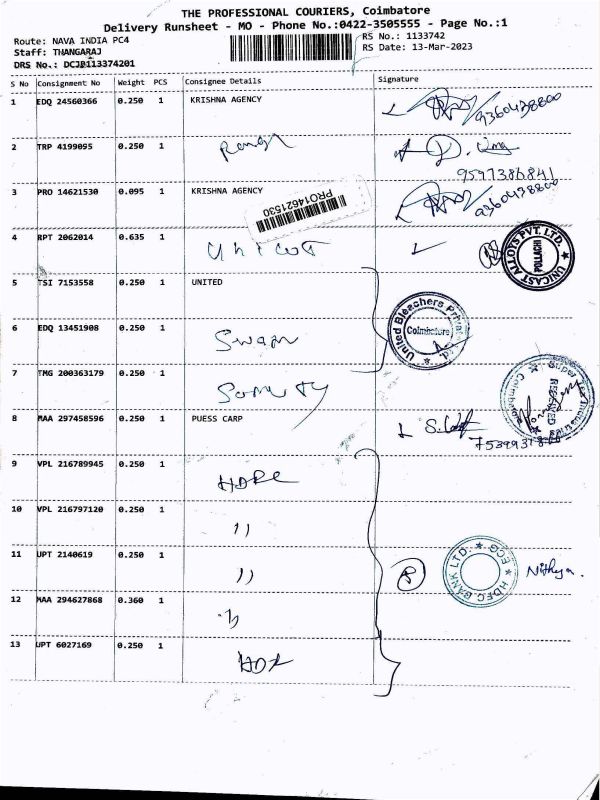 THE PROFESSIONAL COURIERS, Coimbatore
Delivery Runsheet - MO - Phone No.:0422-3505555 - Page No.:1
Route: NAVA INDIA PC4
RS No.: 1133742
Staff: THANGARAJ
RS Date: 13-Mar-2023
DRS No.: DCJB113374201
S No Consignment No Weight PCS Consignee Details Signature
1 EDQ 24560366 0.250 1 KRISHNA AGENCY 9360438800
2 TRP 4199095 0.250 1
9597386841
3 PRO 14621530 0.095 1 KRISHNA AGENCY 9360438800
PRO14621530
4 RPT 2062014 0.635 1 Unicast
UNICAST ALLOYS PVT. LTD. POLLACHI
5 TSI 7153558 0.250 1 UNITED
United Bleachers Private Ltd. Coimbatore
6 EDQ 13451908 0.250 1 Swan
7 TMG 200363179 0.250 1
RECEIVED
8 MAA 297458596 0.250 1 PUESS CARP
9 VPL 216789945 0.250 1 HDFC
10 VPL 216797120 0.250 1 ))
11 UPT 2140619 0.250 1 ))
HDFC BANK LTD. Nithya.
12 MAA 294627868 0.360 1 ))
13 UPT 6027169 0.250 1